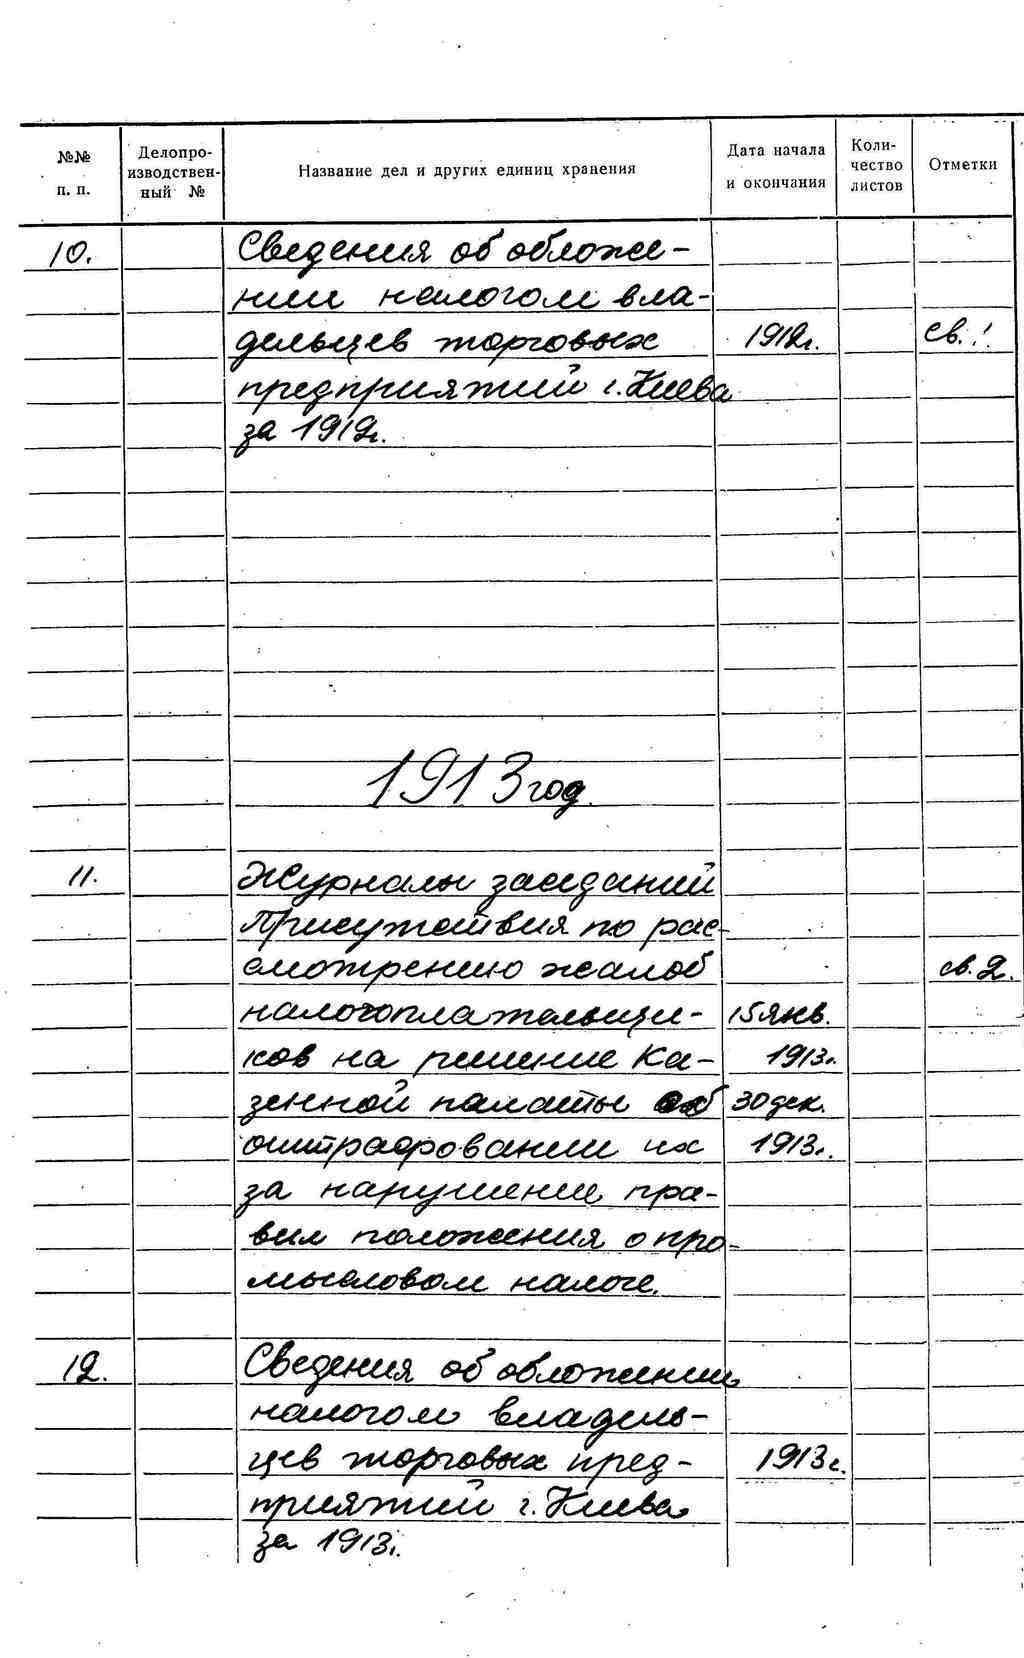 №№ п. п. Делопроизводствен-ный № Название дел и других единиц хранения Дата начала и окончания Коли-чество листов Отметки
10. Сведения об обложе-
нии налогом вла-
дельцев торговых 1912г. св. 1.
предприятий г. Киева
за 1912г.
1913 год.
11. Журналы заседаний
Присутствия по рас-
смотрению жалоб св. 2.
налогоплательщи- 15 янв.
ков на решение Ка- 1913г.
зенной палаты об 30 дек.
оштрафовании их 1913г.
за нарушение пра-
вил положения о про-
мысловом налоге.
12. Сведения об обложении
налогом владель-
цев торговых пред- 1913г.
приятий г. Киева
за 1913г.